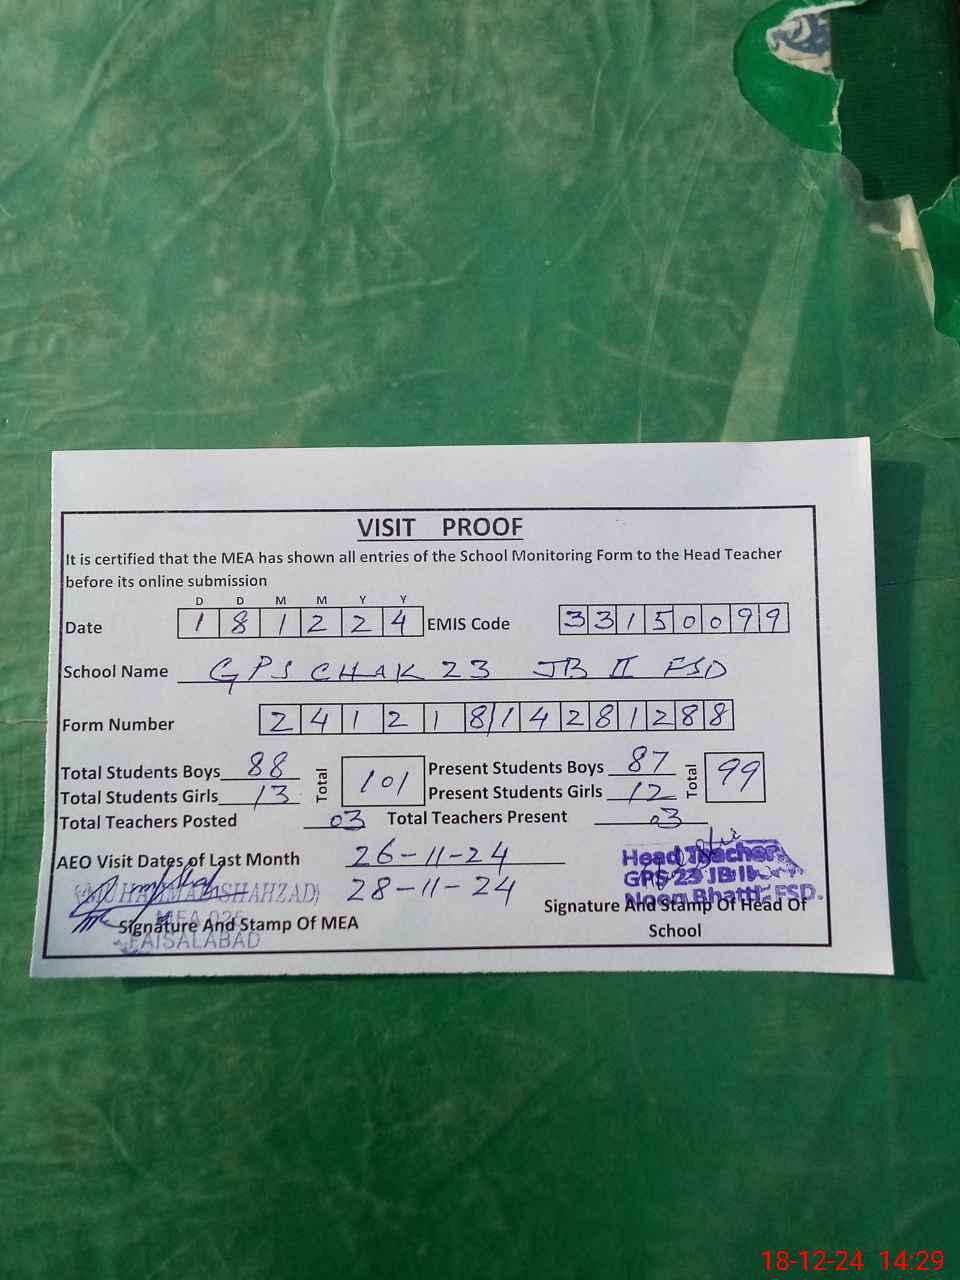 VISIT PROOF
It is certified that the MEA has shown all entries of the School Monitoring Form to the Head Teacher
before its online submission
D D M M Y Y
Date 1 8 1 2 2 4 EMIS Code 3 3 1 5 0 0 9 9
School Name GPS CHAK 23 JB II FSD
Form Number 2 4 1 2 1 8 1 4 2 8 1 2 8 8
Total Students Boys 88 Total 101 Present Students Boys 87 Total 99
Total Students Girls 13 Present Students Girls 12
Total Teachers Posted 03 Total Teachers Present 03
AEO Visit Dates of Last Month 26-11-24
28-11-24
(MUHAMMAD SHAHZAD)
MEA 026
FAISALABAD
Signature And Stamp Of MEA
Head Teacher
GPS 23 JB II
Noon Bhatti FSD.
Signature And Stamp Of Head Of
School
18-12-24 14:29